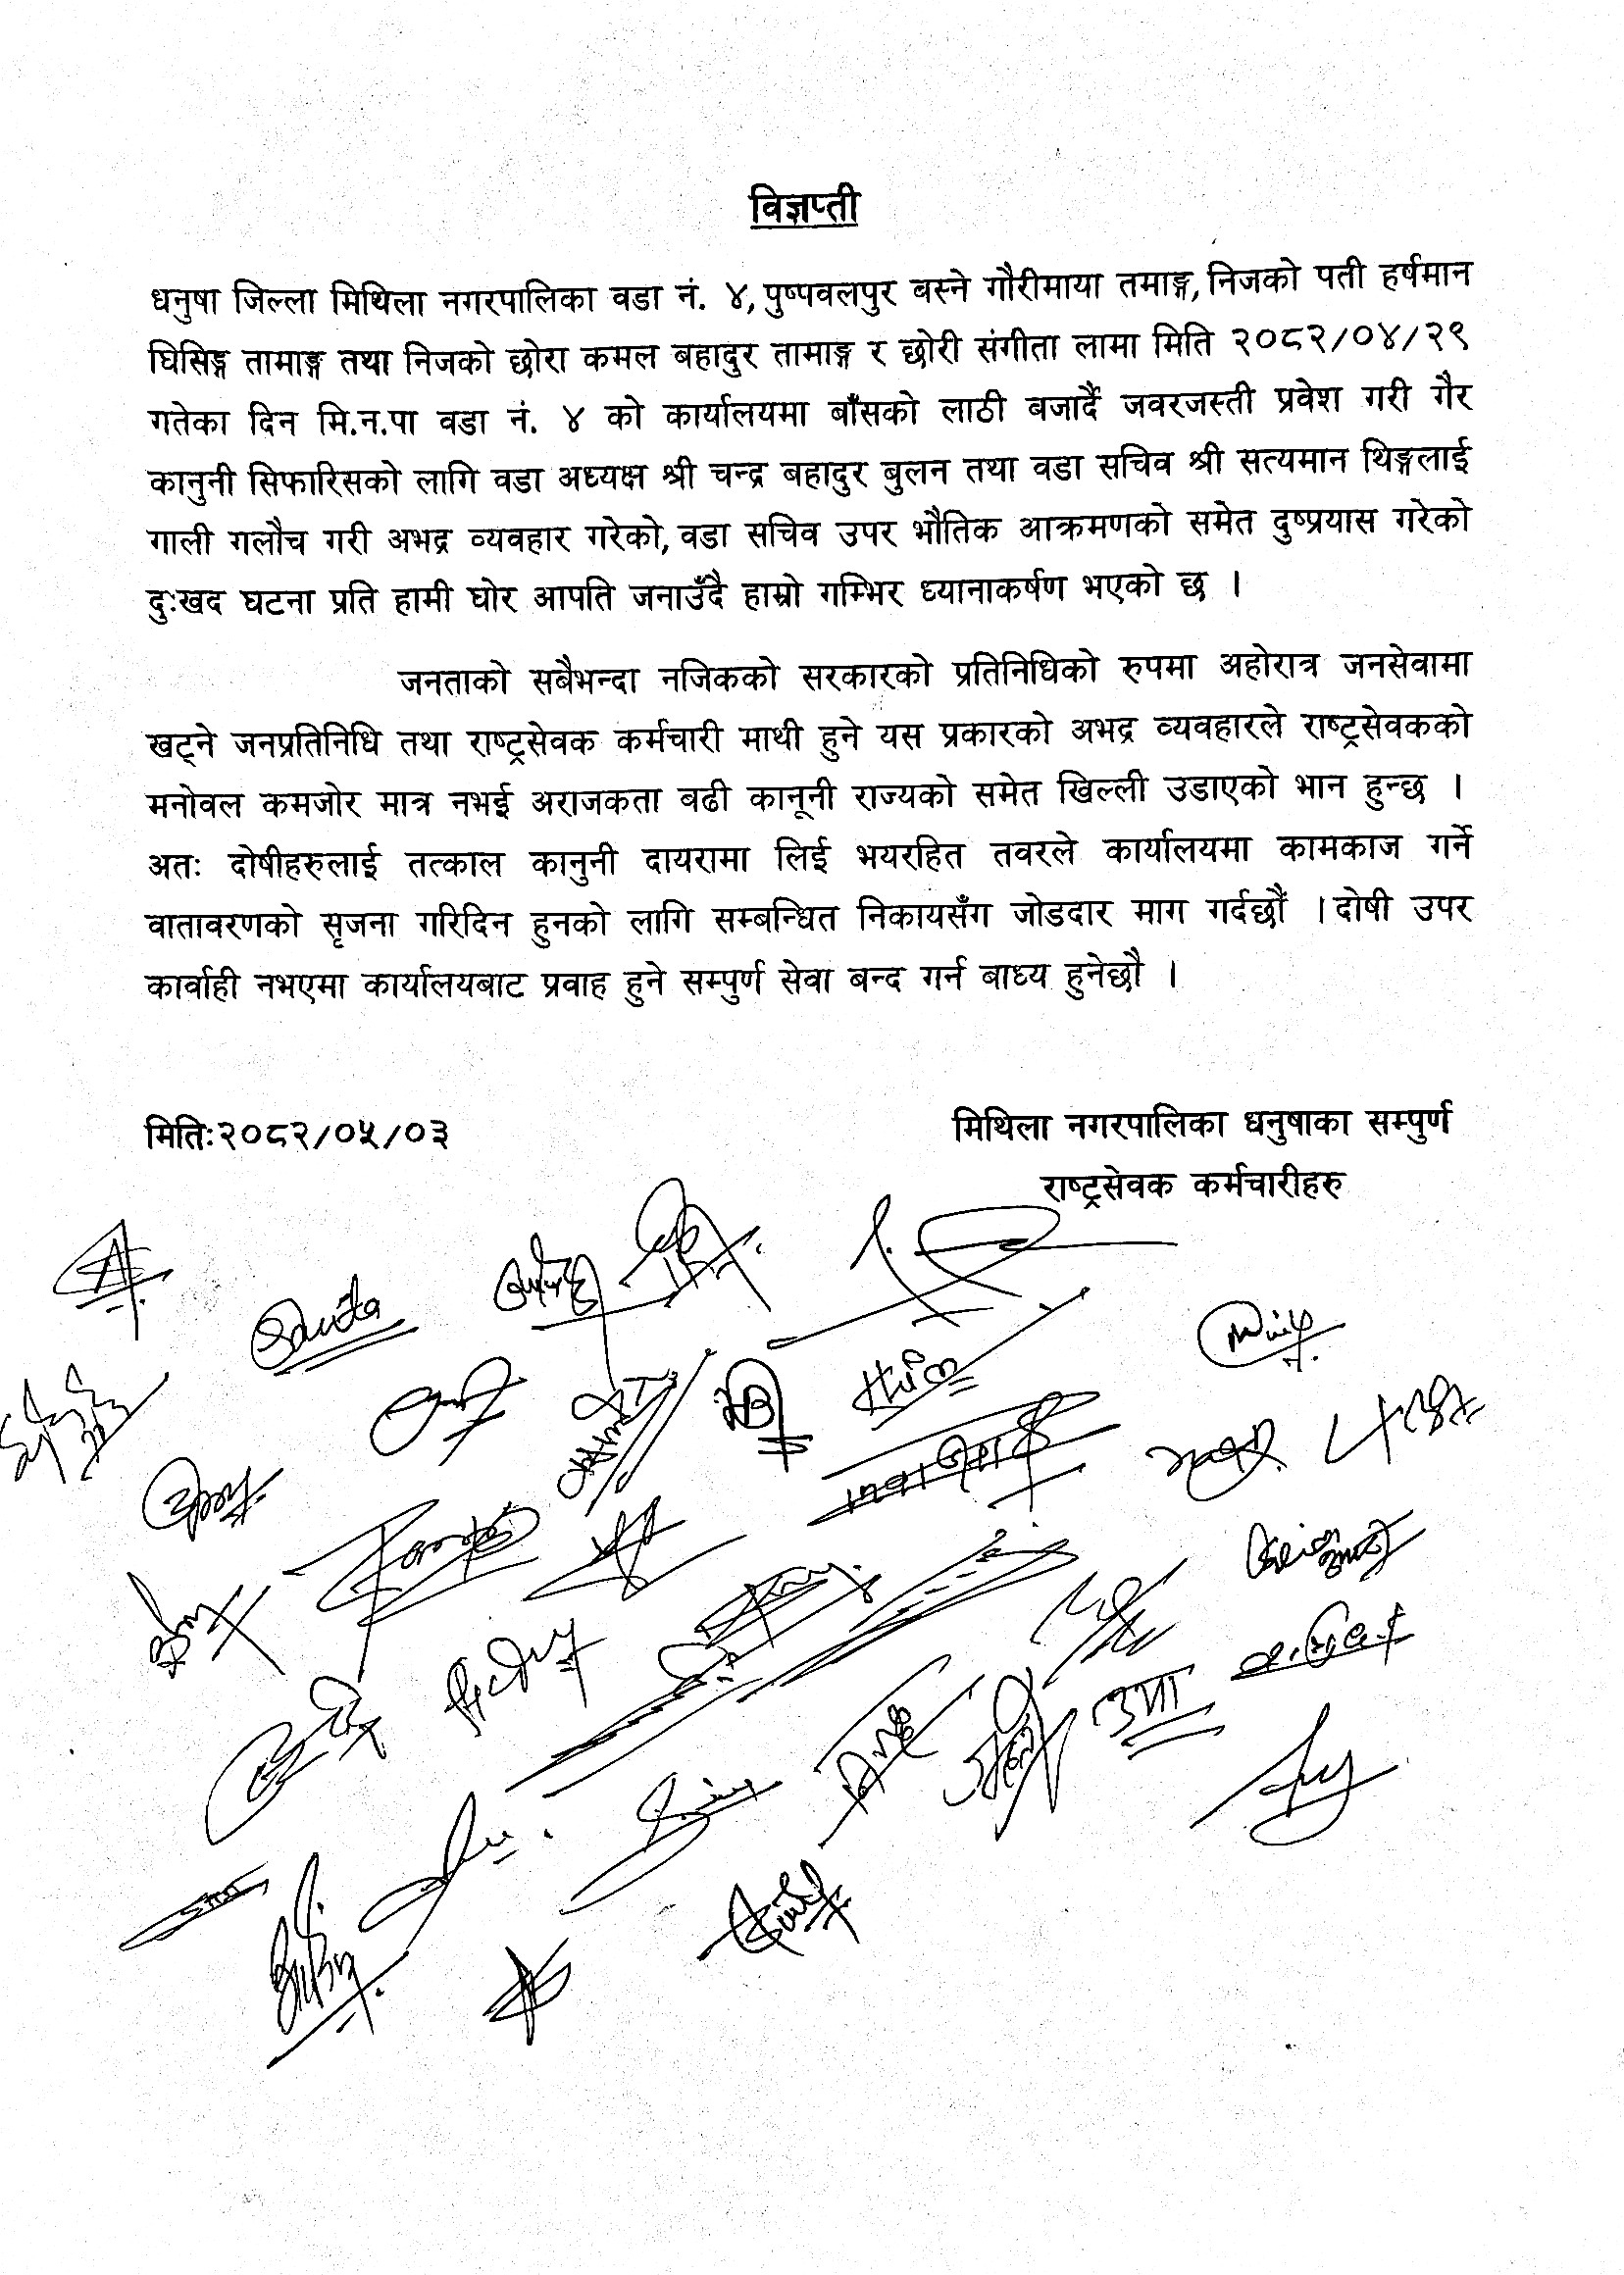 विज्ञप्ती
धनुषा जिल्ला मिथिला नगरपालिका वडा नं. ४, पुष्पवलपुर बस्ने गौरीमाया तमाङ्ग, निजको पती हर्षमान
घिसिङ्ग तामाङ्ग तथा निजको छोरा कमल बहादुर तामाङ्ग र छोरी संगीता लामा मिति २०८२/०४/२९
गतेका दिन मि.न.पा वडा नं. ४ को कार्यालयमा बाँसको लाठी बजार्दै जवरजस्ती प्रवेश गरी गैर
कानुनी सिफारिसको लागि वडा अध्यक्ष श्री चन्द्र बहादुर बुलन तथा वडा सचिव श्री सत्यमान थिङ्गलाई
गाली गलौच गरी अभद्र व्यवहार गरेको, वडा सचिव उपर भौतिक आक्रमणको समेत दुष्प्रयास गरेको
दुःखद घटना प्रति हामी घोर आपति जनाउँदै हाम्रो गम्भिर ध्यानाकर्षण भएको छ ।
जनताको सबैभन्दा नजिकको सरकारको प्रतिनिधिको रुपमा अहोरात्र जनसेवामा
खट्ने जनप्रतिनिधि तथा राष्ट्रसेवक कर्मचारी माथी हुने यस प्रकारको अभद्र व्यवहारले राष्ट्रसेवकको
मनोवल कमजोर मात्र नभई अराजकता बढी कानूनी राज्यको समेत खिल्ली उडाएको भान हुन्छ ।
अतः दोषीहरुलाई तत्काल कानुनी दायरामा लिई भयरहित तवरले कार्यालयमा कामकाज गर्ने
वातावरणको सृजना गरिदिन हुनको लागि सम्बन्धित निकायसँग जोडदार माग गर्दछौं । दोषी उपर
कार्वाही नभएमा कार्यालयबाट प्रवाह हुने सम्पुर्ण सेवा बन्द गर्न बाध्य हुनेछौ ।
मितिः२०८२/०५/०३
मिथिला नगरपालिका धनुषाका सम्पुर्ण
राष्ट्रसेवक कर्मचारीहरु
उमा